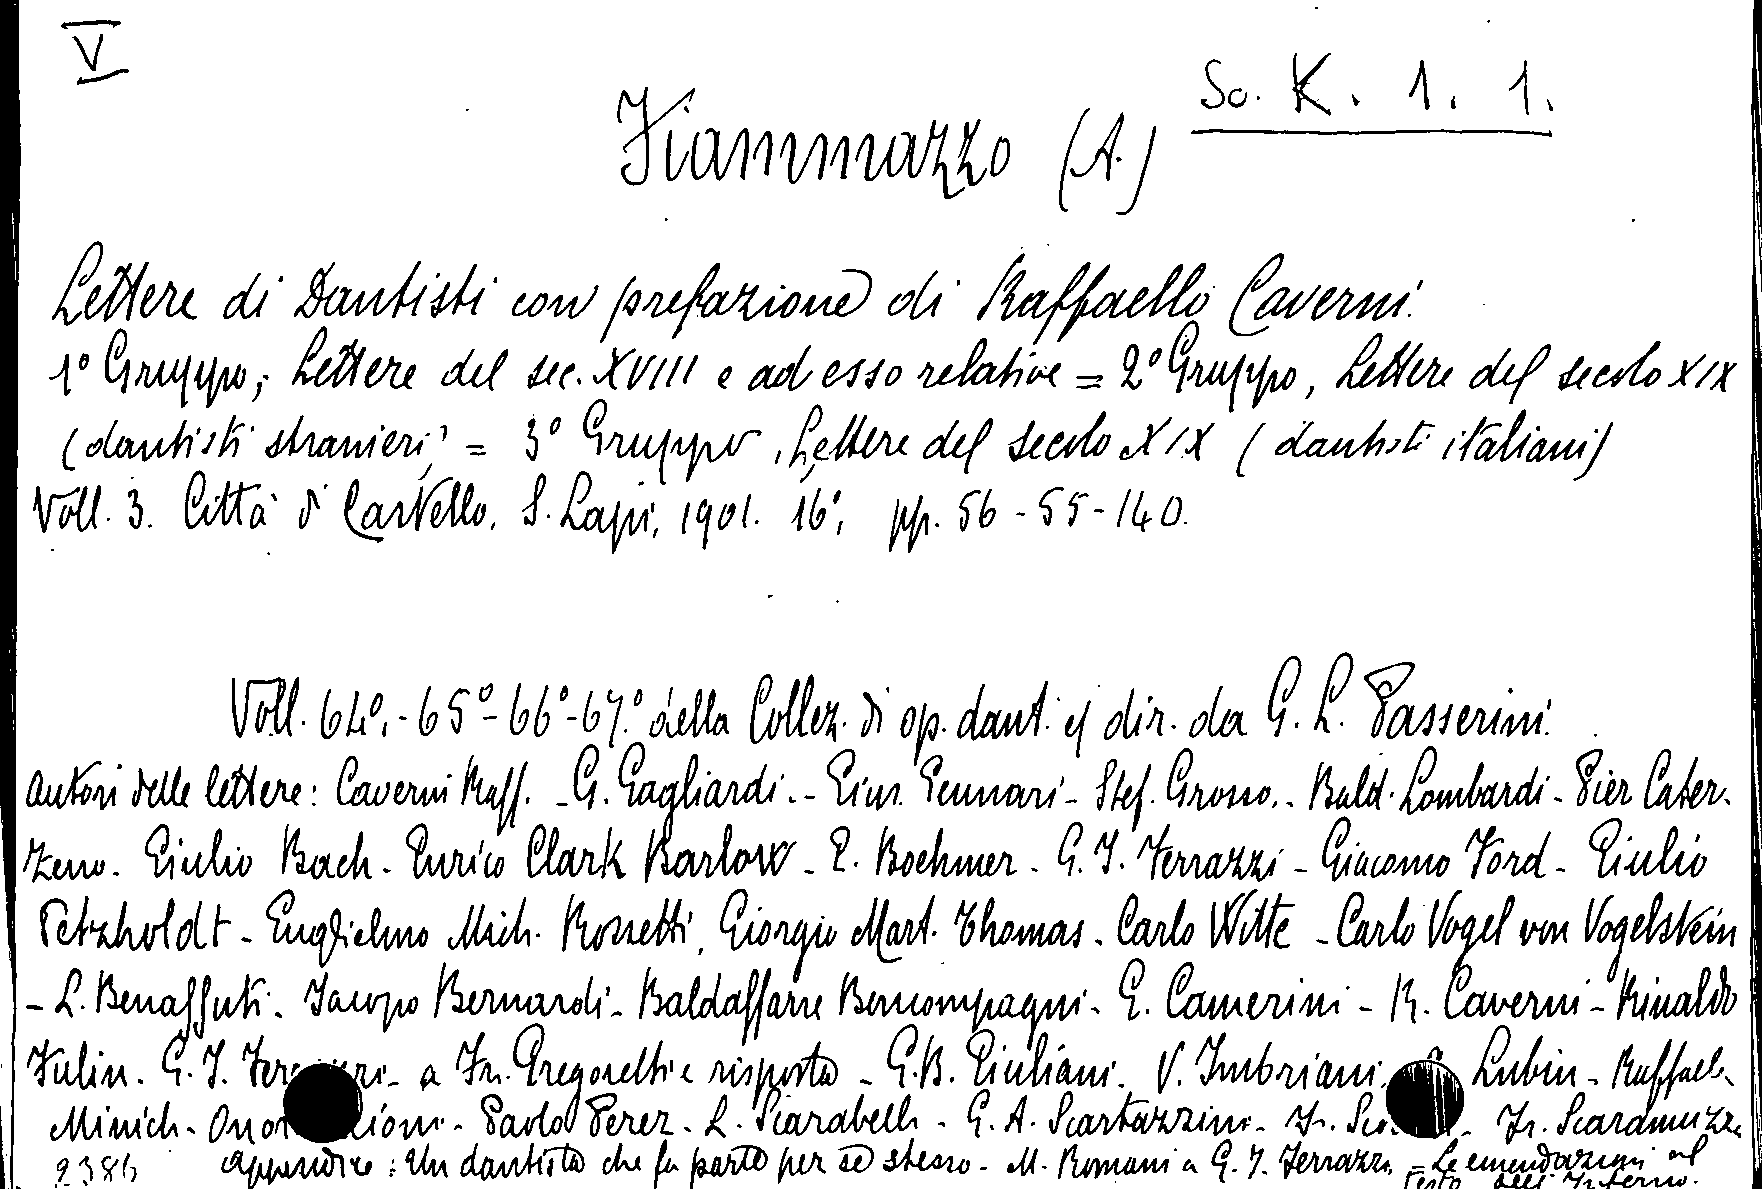 V
So. K. 1. 1.
Fiammazzo (A.)
Lettere di Dantisti con prefazione di Raffaello Caverni.
1° Gruppo, Lettere del sec. XVIII e ad esso relative = 2° Gruppo, Lettere del secolo XIX
(dantisti stranieri) = 3° Gruppo, Lettere del secolo XIX (dantisti italiani)
Voll. 3. Città di Castello, S. Lapi, 1901. 16°, pp. 56 - 55 - 140.
Voll. 64°. - 65° - 66° - 67.° della Collez. di op. dant. dir. da G. L. Passerini.
Autori delle lettere: Caverni Raff. - G. Gagliardi. - Gius. Gennari - Stef. Grosso. - Bald. Lombardi - Pier Cater.
Zeno. Giulio Bach. Enrico Clark Barlow - E. Boehmer - G. J. Ferrazzi - Giacomo Ford - Giulio
Petzholdt - Guglielmo Mich. Rossetti, Giorgio Mart. Thomas - Carlo Witte - Carlo Vogel von Vogelstein
- L. Benassuti - Jacopo Bernardi - Baldassarre Boncompagni - E. Camerini - R. Caverni - Rinaldo
Fulin. G. J. a Fr. Gregoretti e risposta - G.B. Giuliani. V. Imbriani. Lubin - Raffaele
Minich - Paolo Perez - L. Scarabelli - G. A. Scartazzini - Fr. Fr. Scaramuzza
2386 Appendice: Un dantista che fa parte per sé stesso - M. Romani a G. J. Ferrazzi = Le emendazioni al
Testo dell'Inferno.